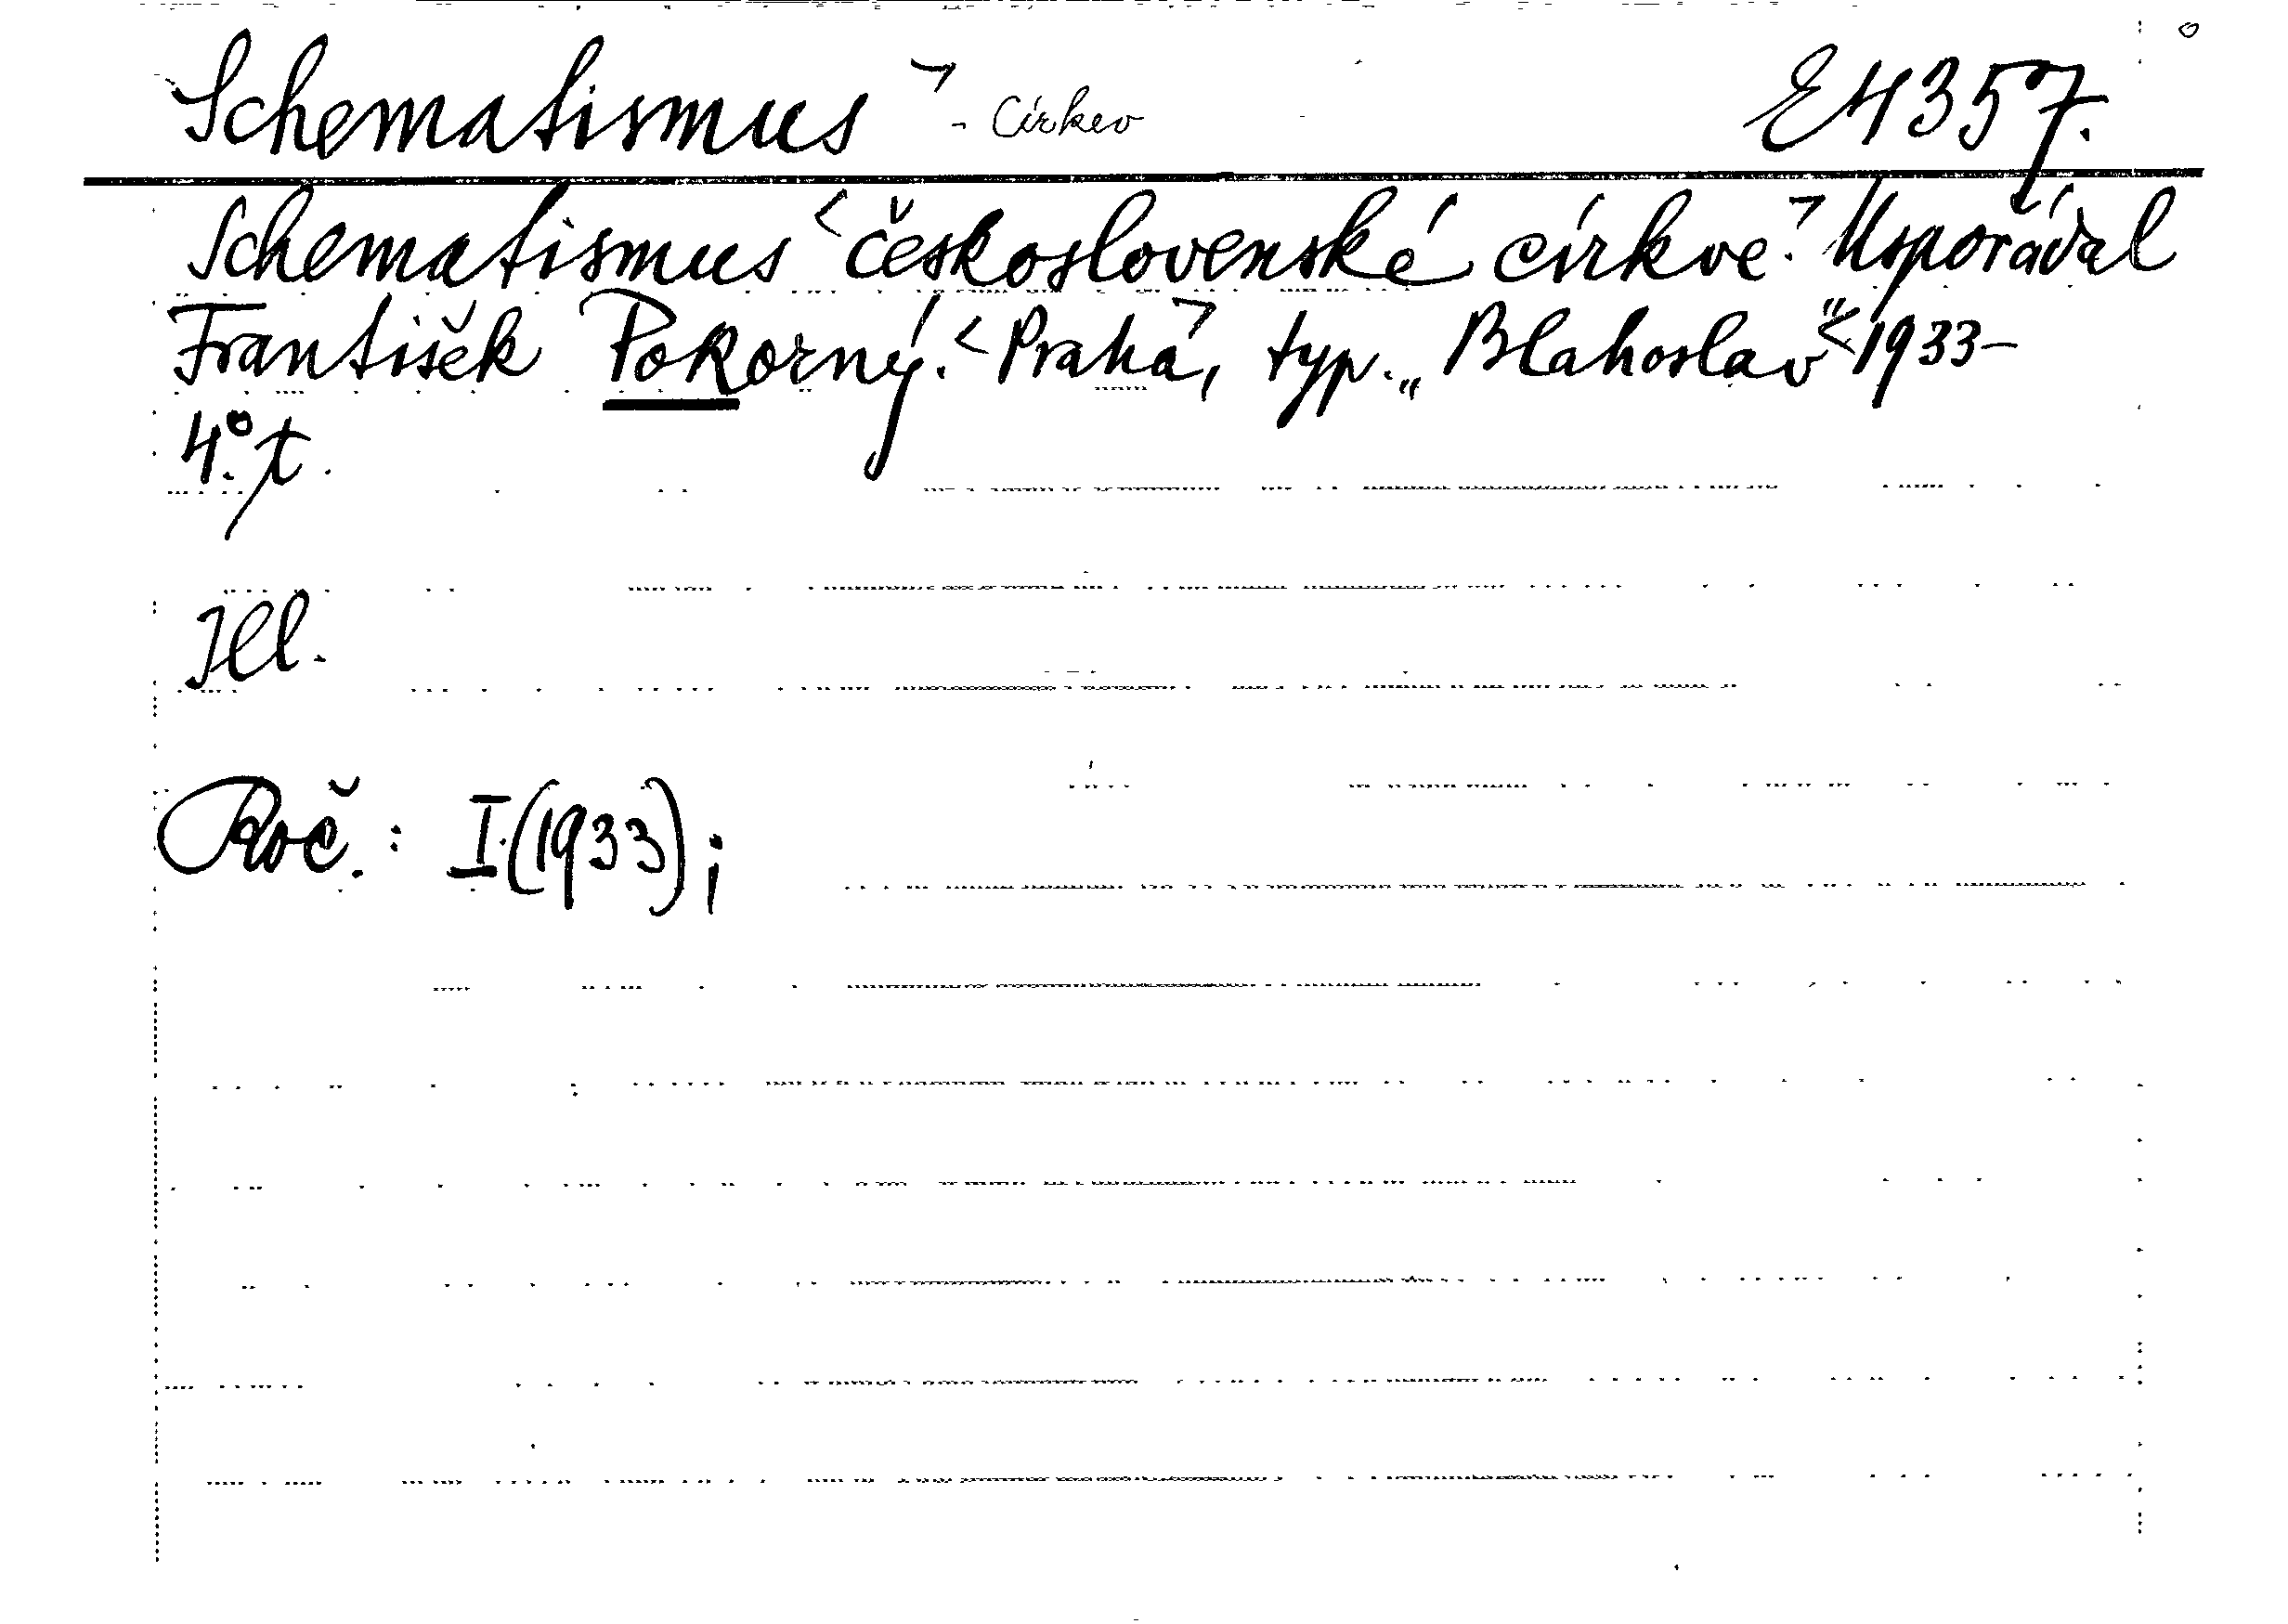 Schematismus - Církev E4357.
Schematismus československé církve. Uspořádal
František Pokorný. Praha, typ. „Blahoslav“ 1933-
4°. t.
Ill.
Roč.: I.(1933);